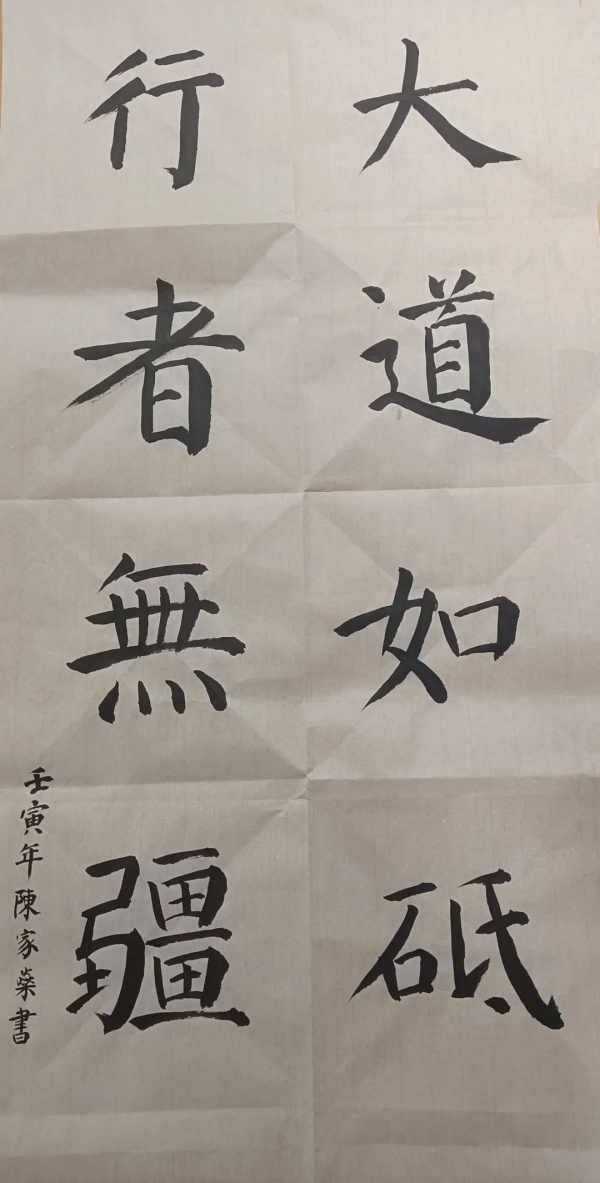 大道如砥
行者無疆
壬寅年陳家燊書